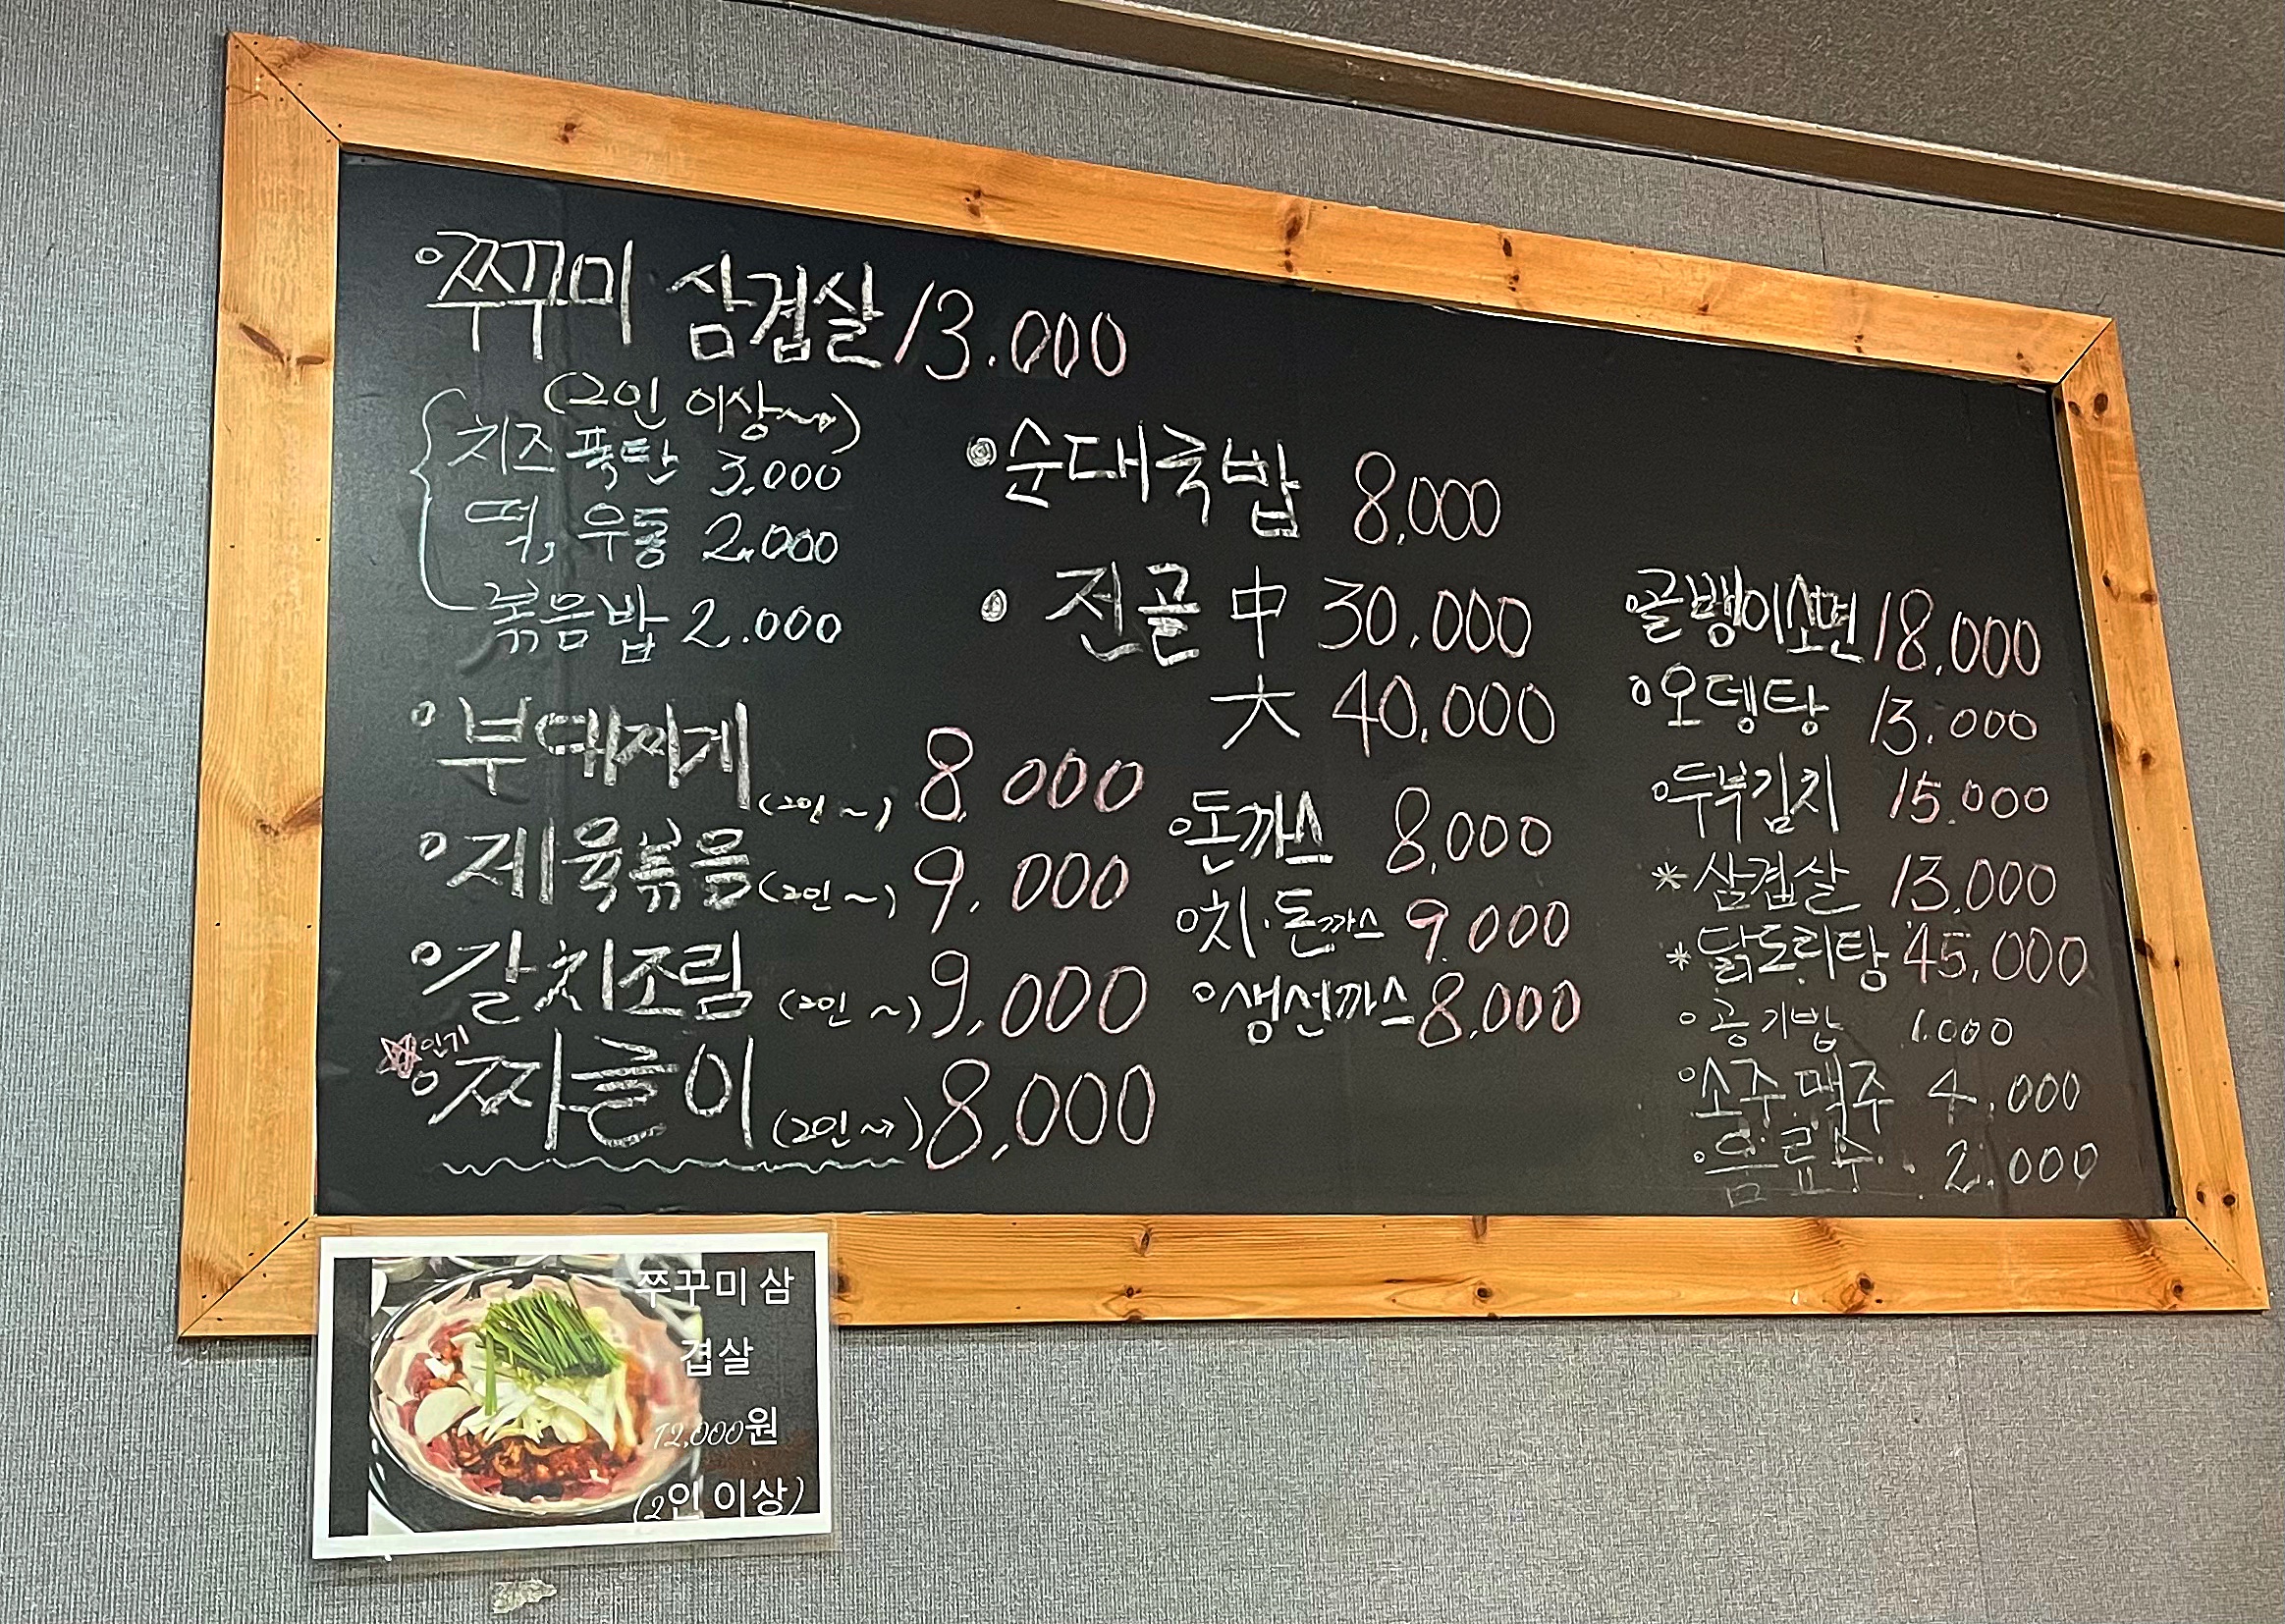 쭈꾸미 삼겹살 13.000
(2인 이상~)
치즈퐁탄 3.000
떡, 우동 2.000
볶음밥 2.000
부대찌게 (2인~) 8.000
제육볶음 (2인~) 9,000
갈치조림 (2인~) 9,000
인기
짜글이 (2인~) 8,000
순대국밥 8,000
전골 中 30,000
大 40,000
돈까스 8,000
치·돈까스 9.000
생선까스 8,000
골뱅이소면 18,000
오뎅탕 13.000
두부김치 15.000
*삼겹살 13.000
*닭도리탕 45,000
공기밥 1.000
소주.맥주 4.000
음료수. 2.000
쭈꾸미 삼
겹살
12,000원
(2인 이상)